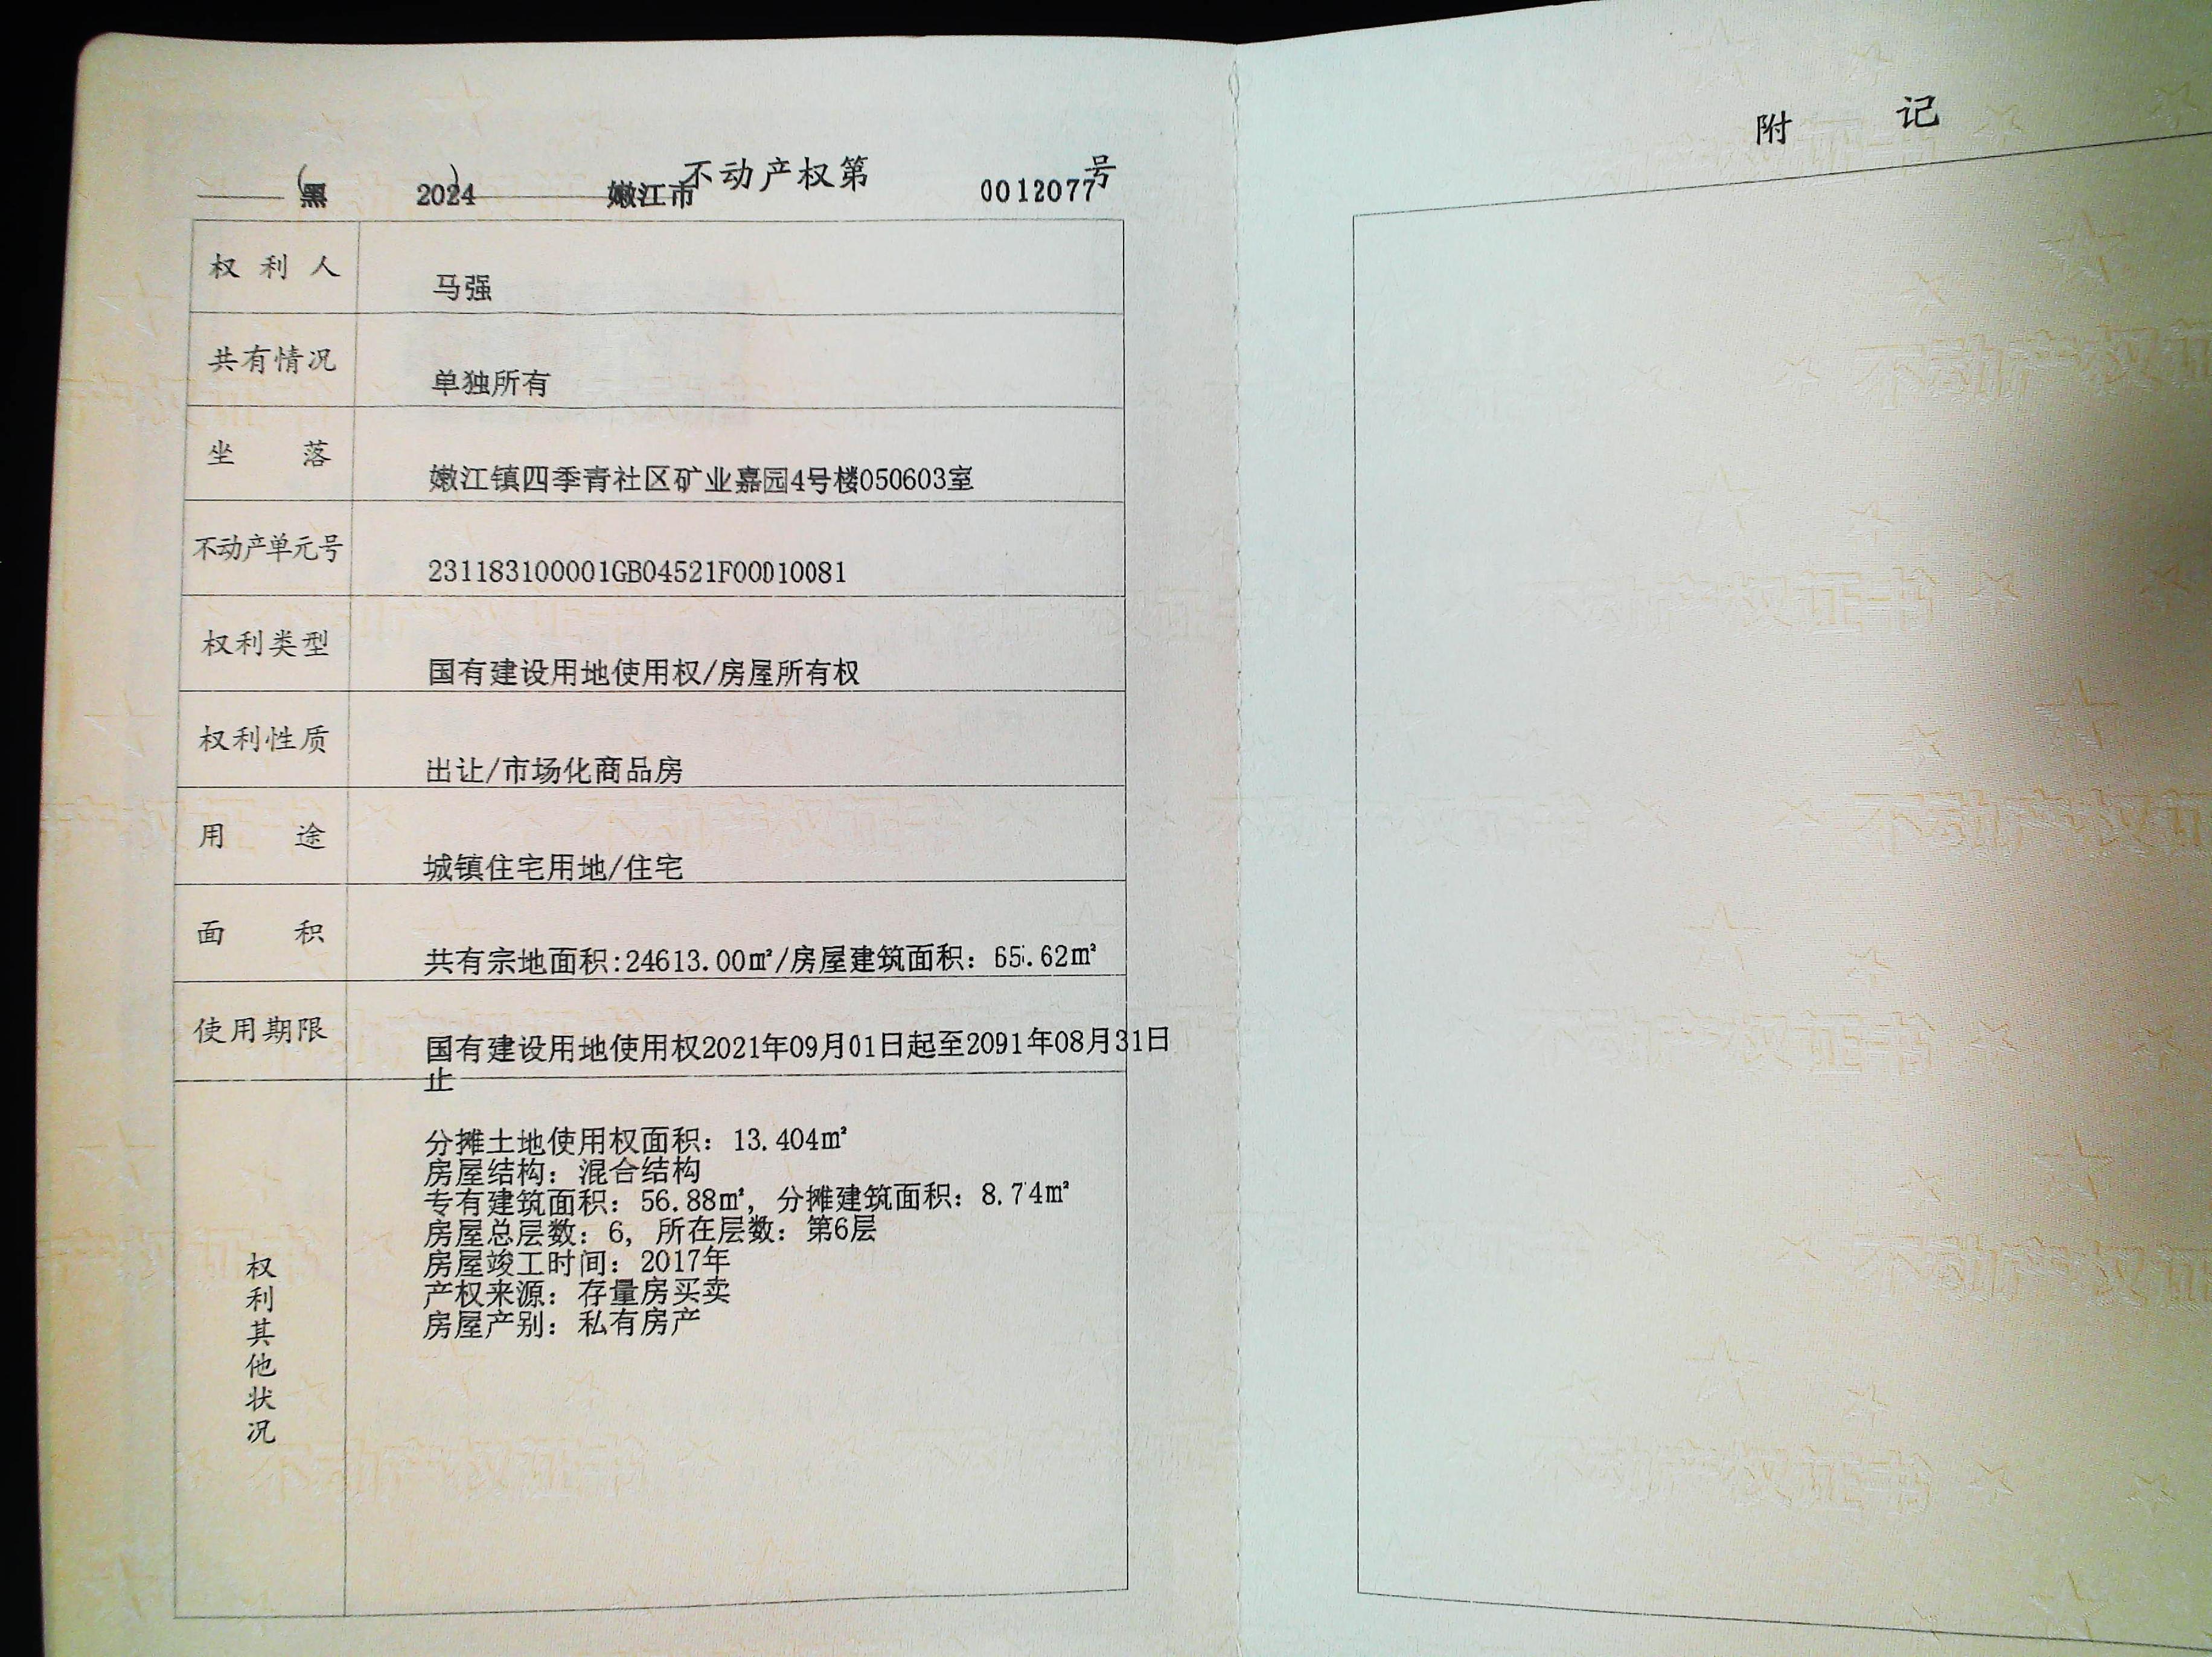 黑（2024）嫩江市不动产权第0012077号
权利人 马强
共有情况 单独所有
坐落 嫩江镇四季青社区矿业嘉园4号楼050603室
不动产单元号 231183100001GB04521F00010081
权利类型 国有建设用地使用权/房屋所有权
权利性质 出让/市场化商品房
用途 城镇住宅用地/住宅
面积 共有宗地面积:24613.00㎡/房屋建筑面积：65.62㎡
使用期限 国有建设用地使用权2021年09月01日起至2091年08月31日
止
权利其他状况
分摊土地使用权面积：13.404㎡
房屋结构：混合结构
专有建筑面积：56.88㎡，分摊建筑面积：8.74㎡
房屋总层数：6，所在层数：第6层
房屋竣工时间：2017年
产权来源：存量房买卖
房屋产别：私有房产
附记